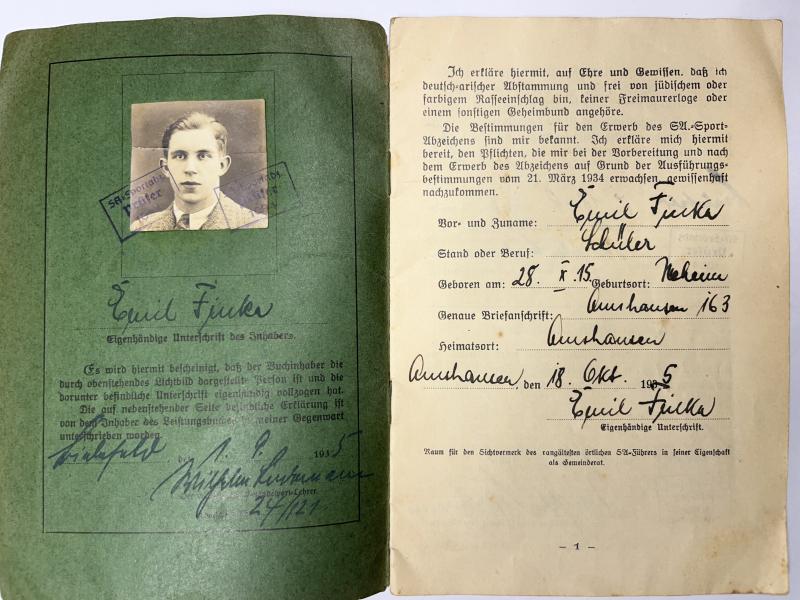 SA-Sportabt.
Prüfer
Emil Finke
Eigenhändige Unterschrift des Inhabers.
Es wird hiermit bescheinigt, daß der Buchinhaber die
durch obenstehendes Lichtbild dargestellte Person ist und die
darunter befindliche Unterschrift eigenhändig vollzogen hat.
Die auf nebenstehender Seite befindliche Erklärung ist
von dem Inhaber des Leistungsbuches in meiner Gegenwart
unterschrieben worden.
Bielefeld den 1. 9. 1935
Wilhelm
24/121
Ich erkläre hiermit, auf Ehre und Gewissen, daß ich
deutsch-arischer Abstammung und frei von jüdischem oder
farbigem Rasseeinschlag bin, keiner Freimaurerloge oder
einem sonstigen Geheimbund angehöre.
Die Bestimmungen für den Erwerb des SA.-Sport-
Abzeichens sind mir bekannt. Ich erkläre mich hiermit
bereit, den Pflichten, die mir bei der Vorbereitung und nach
dem Erwerb des Abzeichens auf Grund der Ausführungs-
bestimmungen vom 21. März 1934 erwachsen, gewissenhaft
nachzukommen.
Vor- und Zuname: Emil Finke
Stand oder Beruf: Schüler
Geboren am: 28. X. 15. Geburtsort:
Genaue Briefanschrift: Amshausen 163
Heimatsort: Amshausen
Amshausen, den 18. Okt. 1935
Emil Finke
Eigenhändige Unterschrift.
Raum für den Sichtvermerk des rangältesten örtlichen SA-Führers in seiner Eigenschaft
als Gemeinderat.
- 1 -